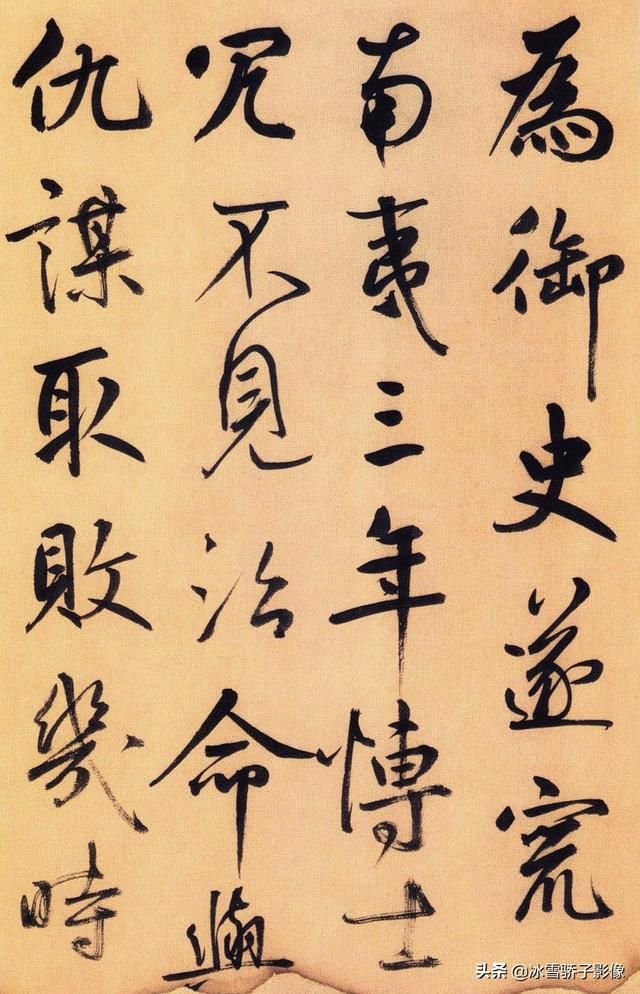 為御史遂竄
南夷三年愽士
冗不見治命與
仇謀取敗幾時
头条 @冰雪骄子影像